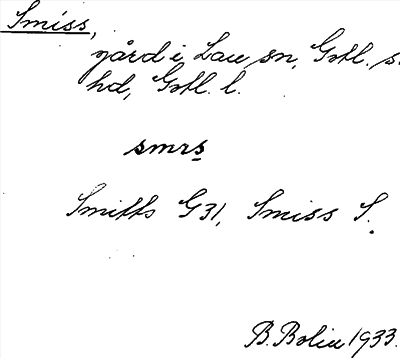 Smiss,
gård i Lau sn, Gotl. s.
hd, Gotl. l.
smrs
Smitts G31, Smiss S.
B. Bolin 1933.